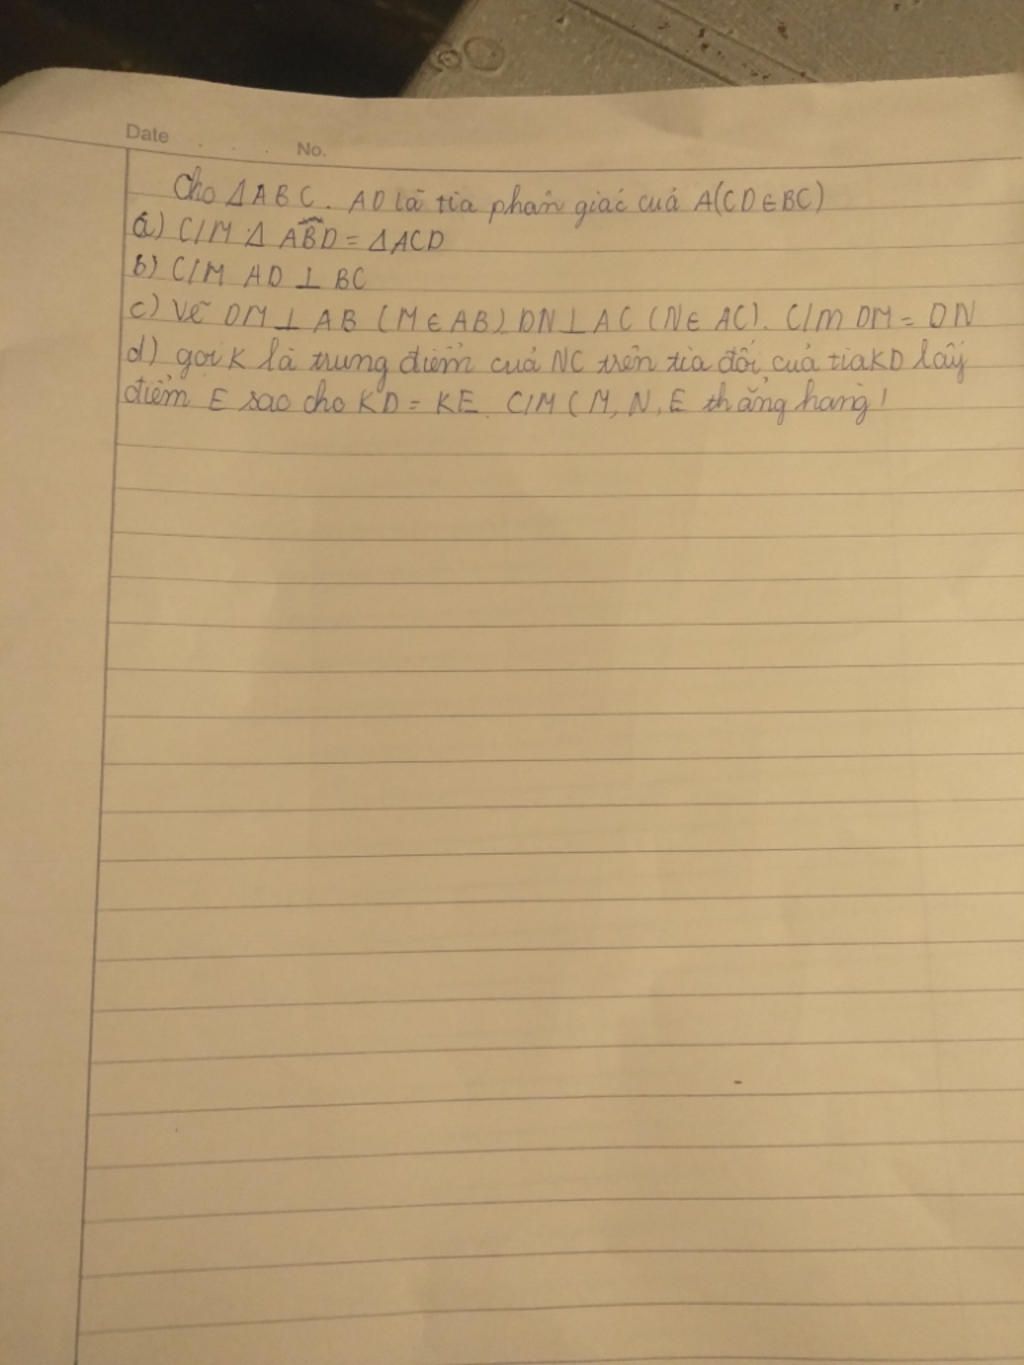 Date . . . No.
Cho ΔABC. AD là tia phân giác của A(CD∈BC)
a) C/M Δ ABD = ΔACD
b) C/M AD ⊥ BC
c) Vẽ DM ⊥ AB (M ∈ AB) DN ⊥ AC (N∈ AC). C/m DM = DN
d) gọi K là trung điểm của NC trên tia đối của tia KD lấy
điểm E sao cho KD = KE. C/M (M, N, E thẳng hàng!